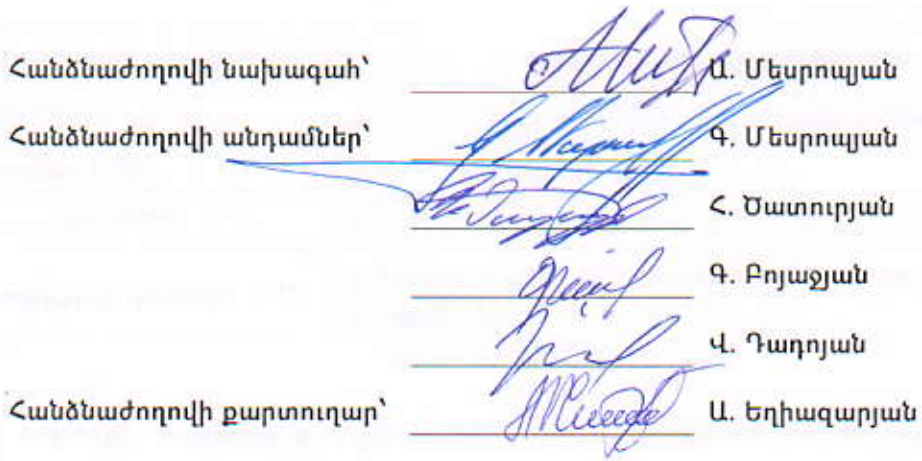 Հանձնաժողովի նախագահ՝ Ա. Մեսրոպյան
Հանձնաժողովի անդամներ՝ Գ. Մեսրոպյան
Հ. Ծատուրյան
Գ. Բոյաջյան
Վ. Դադոյան
Հանձնաժողովի քարտուղար՝ Ա. Եղիազարյան